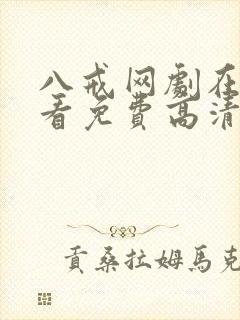 八戒网劇在
看免费高清
贡桑拉姆馬克